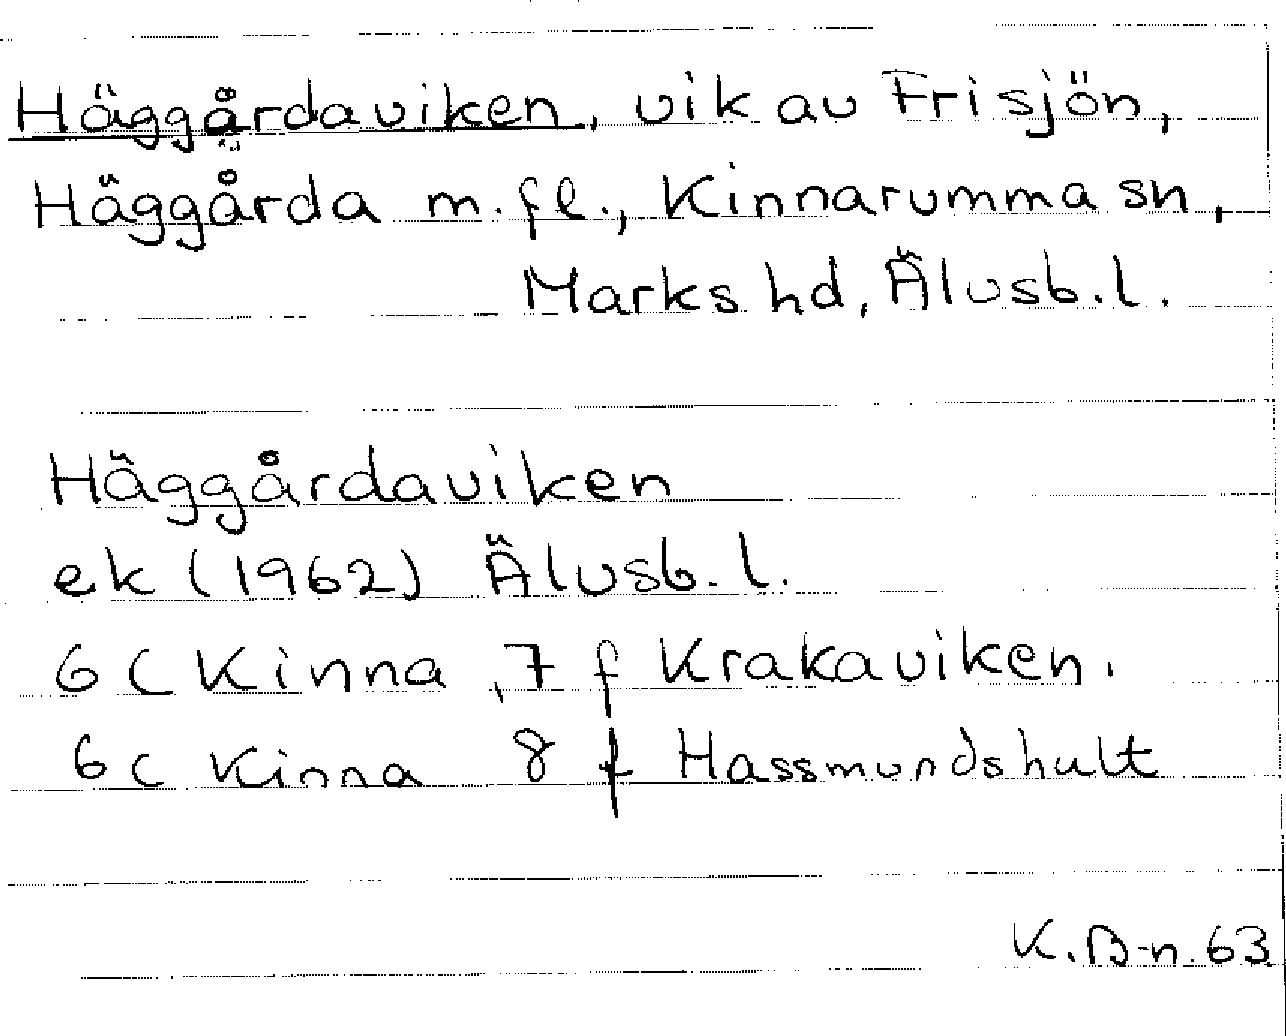 Häggårdaviken, vik av Frisjön,
Häggårda m.fl., Kinnarumma sn,
Marks hd, Älvsb.l.
Häggårdaviken
ek (1962) Älvsb.l.
6C Kinna, 7 f Krakaviken.
6c Kinna 8 f Hassmundshult
K.B-n.63